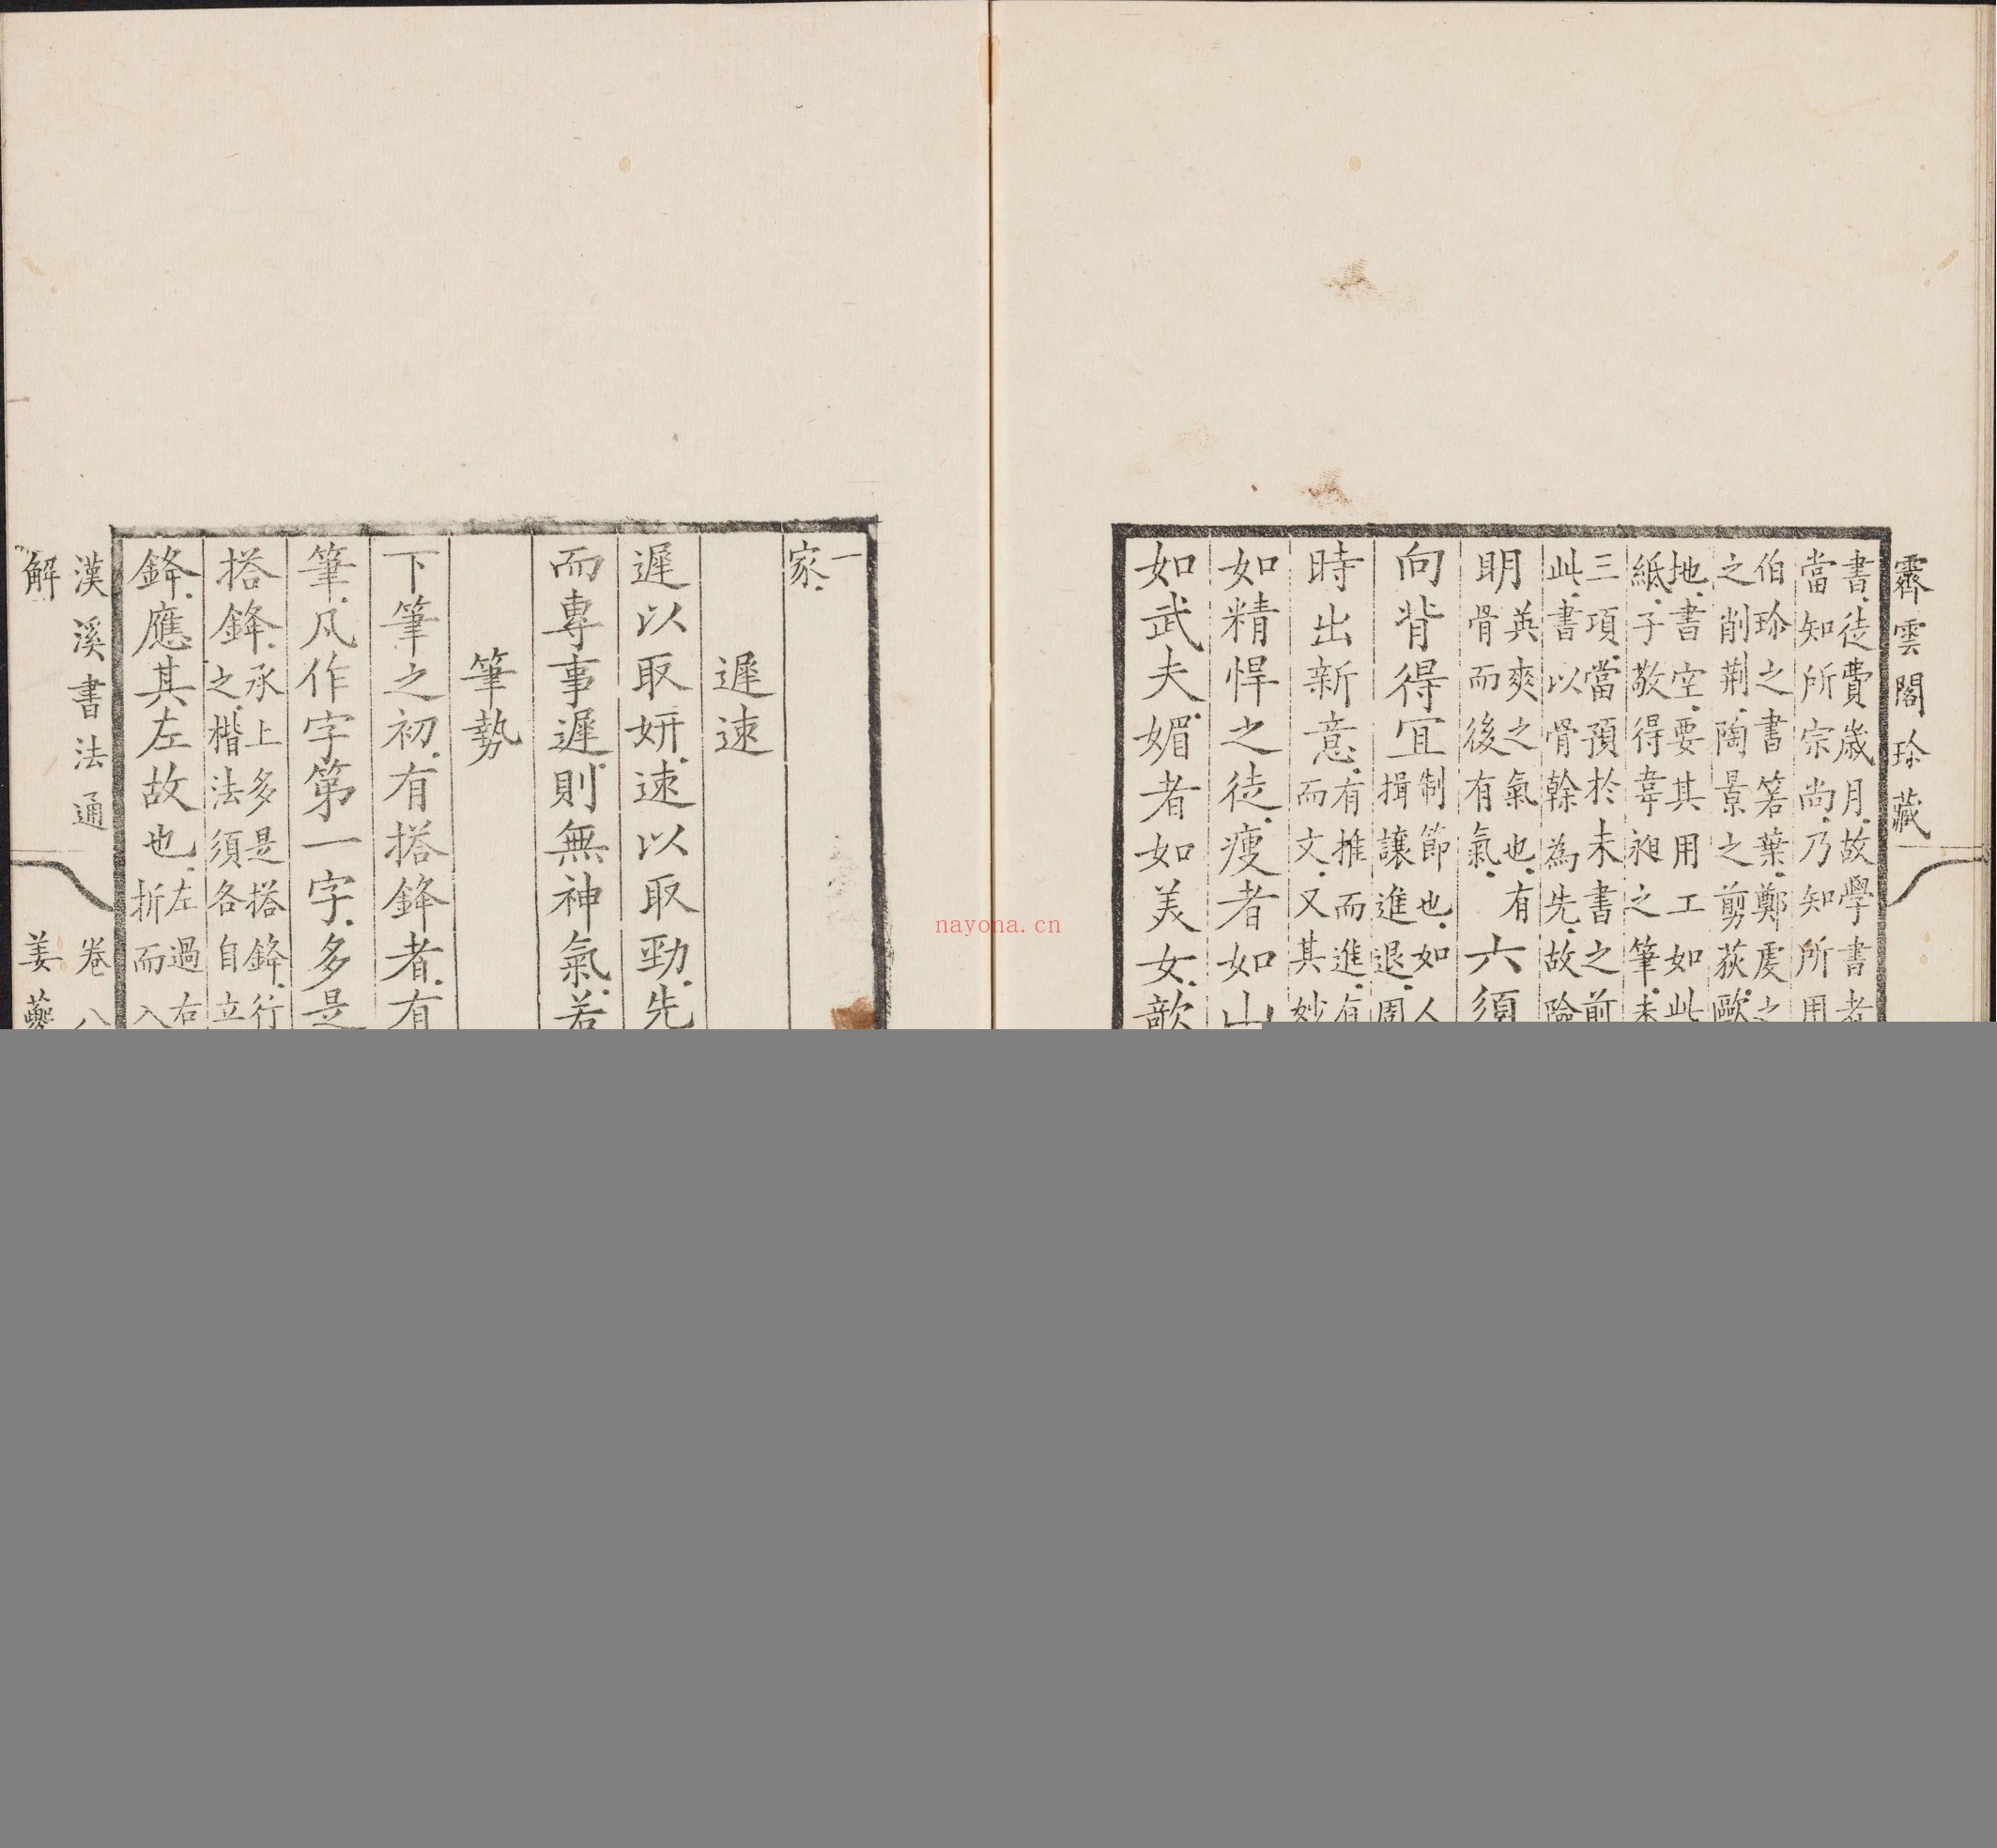 霽雲閣珍藏
書徒費歲月故學書者
當知所宗尚乃知所用
伯珍之書箬葉鄭虔之
之削荆陶景之剪荻歐
地書空要其用工如此
紙子敬得韋昶之筆未
三項當預於未書之前
此書以骨榦為先故險
明
英爽之氣也有
骨而後有氣
六須
向背得宜
制節也如人
揖讓進退周
時出新意
有推而進有
而文又其妙
如精悍之徒瘦者如山
如武夫媚者如美女歆
一
家
遲速
遲以取妍速以取勁先
而專事遲則無神氣若
筆勢
下筆之初有搭鋒者有
筆凡作字第一字多是
搭鋒
承上多是搭鋒行
之楷法須各自立
鋒應其左故也
左過右
折而入
漢溪書法通
解
卷八
姜夔
nayona.cn